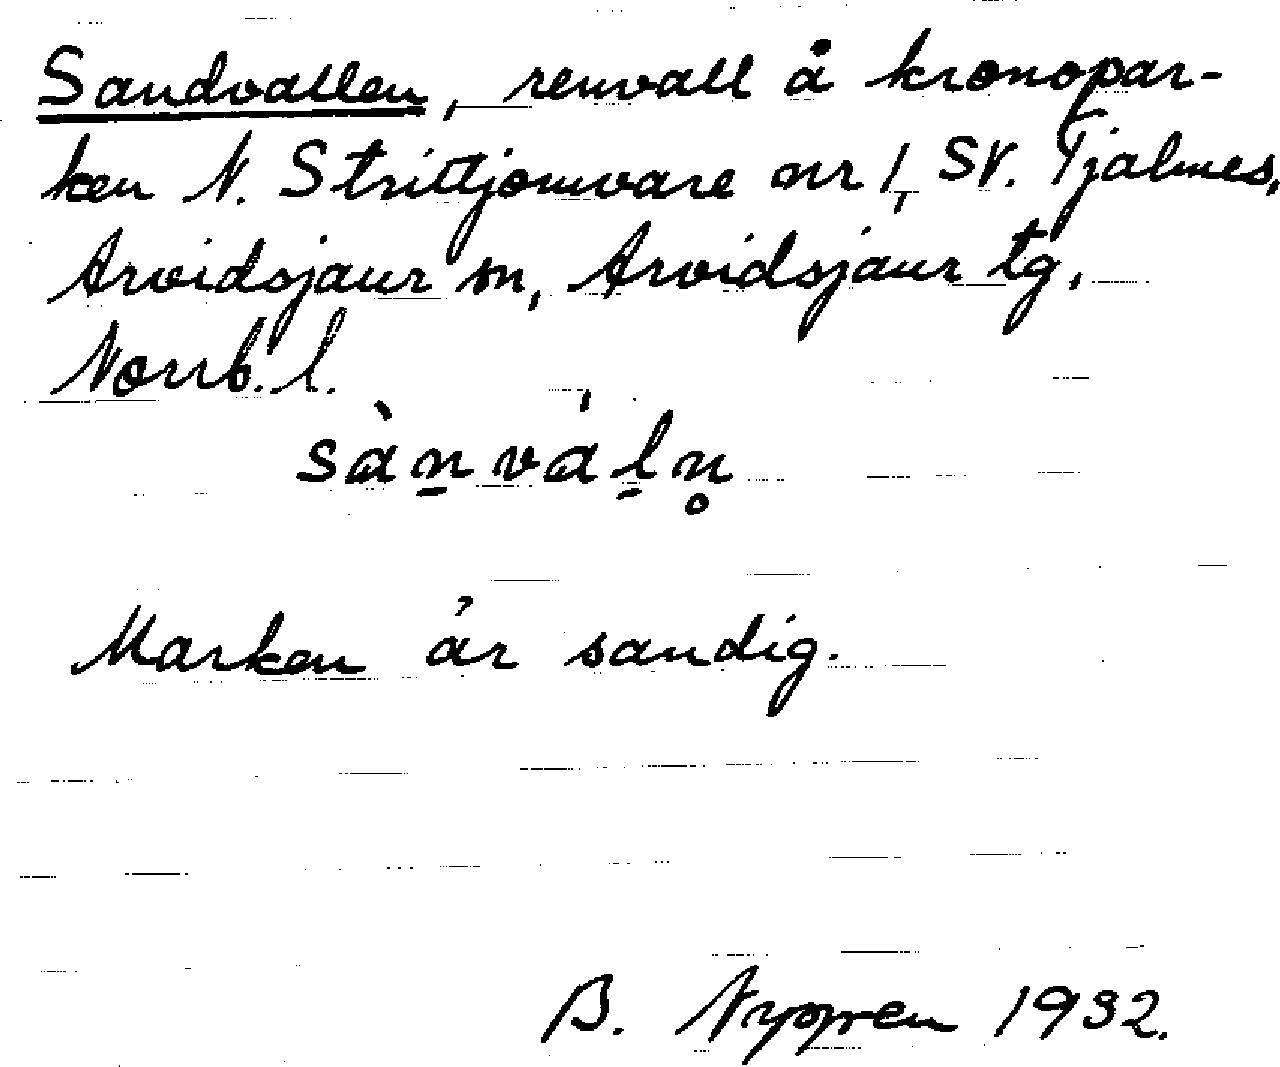 Sandvallen, renvall å kronopar-
ken N. Strittjomvare nr 1, SV. Tjalmes,
Arvidsjaur sn, Arvidsjaur tg,
Norrb. l.
sànváḻn̥
Marken är sandig.
B. 1932.